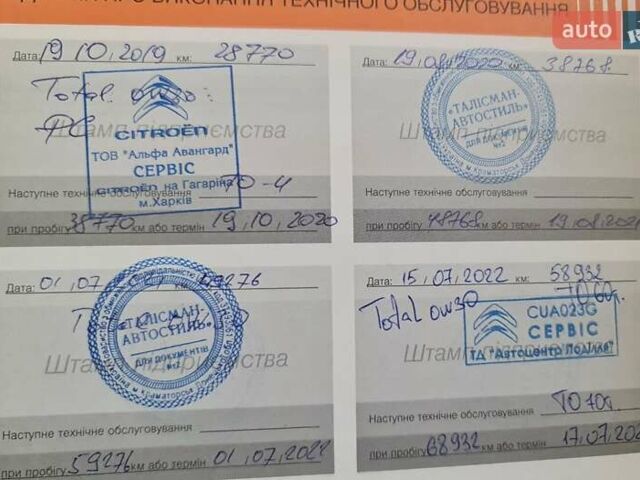 ПРО ВИКОНАННЯ ТЕХНІЧНОГО ОБСЛУГОВУВАННЯ
auto
Дата: 19.10.2019 км: 28770
Total 0W30
Штамп підприємства
CITROËN
ТОВ "Альфа Авангард"
СЕРВІС
CITROËN на Гагаріна
м.Харків
Наступне технічне обслуговування ТО-4
при пробігу 38770 км або термін 19,10,2020
Дата: 19.08.2020 км: 38768
«ТАЛІСМАН-
АВТОСТИЛЬ»
ДЛЯ ДОКУМЕНТІВ
№2
Штамп підприємства
Наступне технічне обслуговування
при пробігу 48768 км або термін 19.08.2021
Дата: 01.07. 49276
«ТАЛІСМАН-
АВТОСТИЛЬ»
ДЛЯ ДОКУМЕНТІВ
№2
Штамп підприємства
Наступне технічне обслуговування
при пробігу 59276 км або термін 01,07,2022
Дата: 15.07.2022 км: 58932
Total 0W30 ТО 60т.
CUA023G
СЕРВІС
ТД "Автоцентр Поділля"
Штамп підприємства
Наступне технічне обслуговування ТО 70т
при пробігу 68932 км або термін 17,07,202